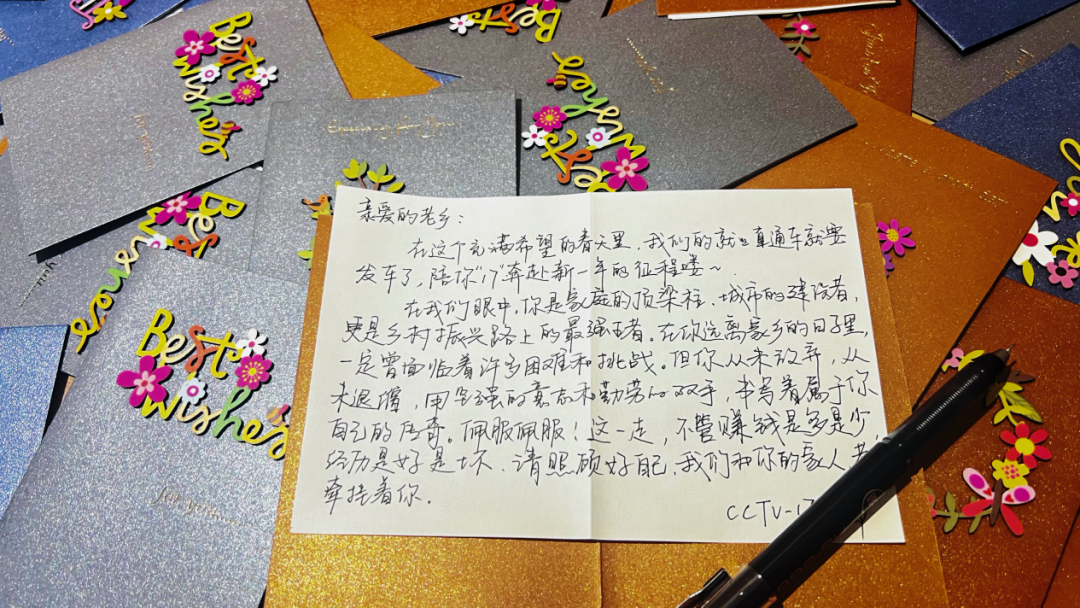 Best
wishes
Best
wishes
Best
wishes
Best
wishes
Best
wishes
Best
亲爱的老乡：
在这个充满希望的春天里，我们的就业直通车就要
发车了，陪你“17”奔赴新一年的征程喽～
在我们眼中，你是家庭的顶梁柱、城市的建设者，
更是乡村振兴路上的最强王者。在你远离家乡的日子里，
一定曾面临着许多困难和挑战。但你从未放弃，从
未退缩，用坚强的意志和勤劳的双手，书写着属于你
自己的传奇。佩服佩服！这一走，不管赚钱是多是少，
经历是好是坏，请照顾好自己，我们和你的家人
牵挂着你。
CCTV-17